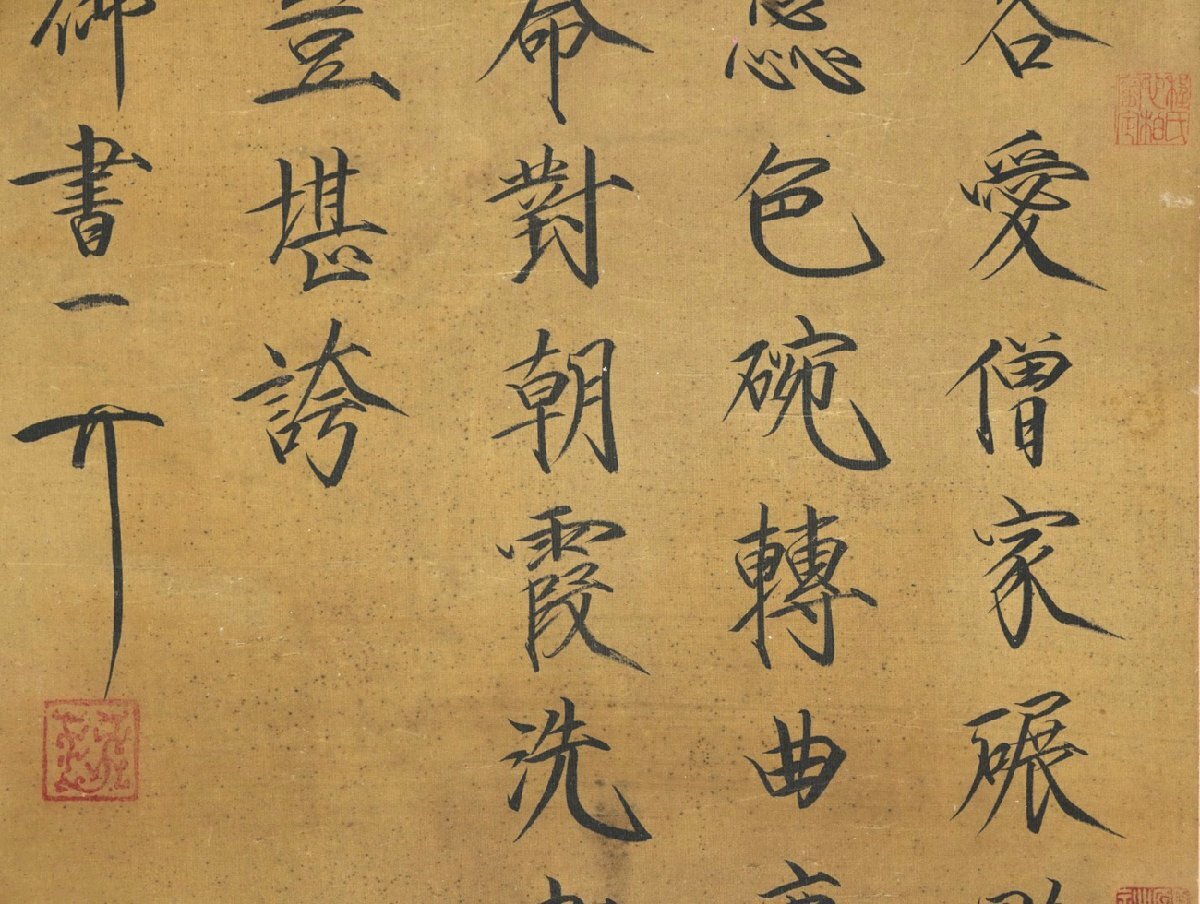 客愛僧家碾
蕊色碗轉曲
命對朝霞洗
豈堪誇
御書一